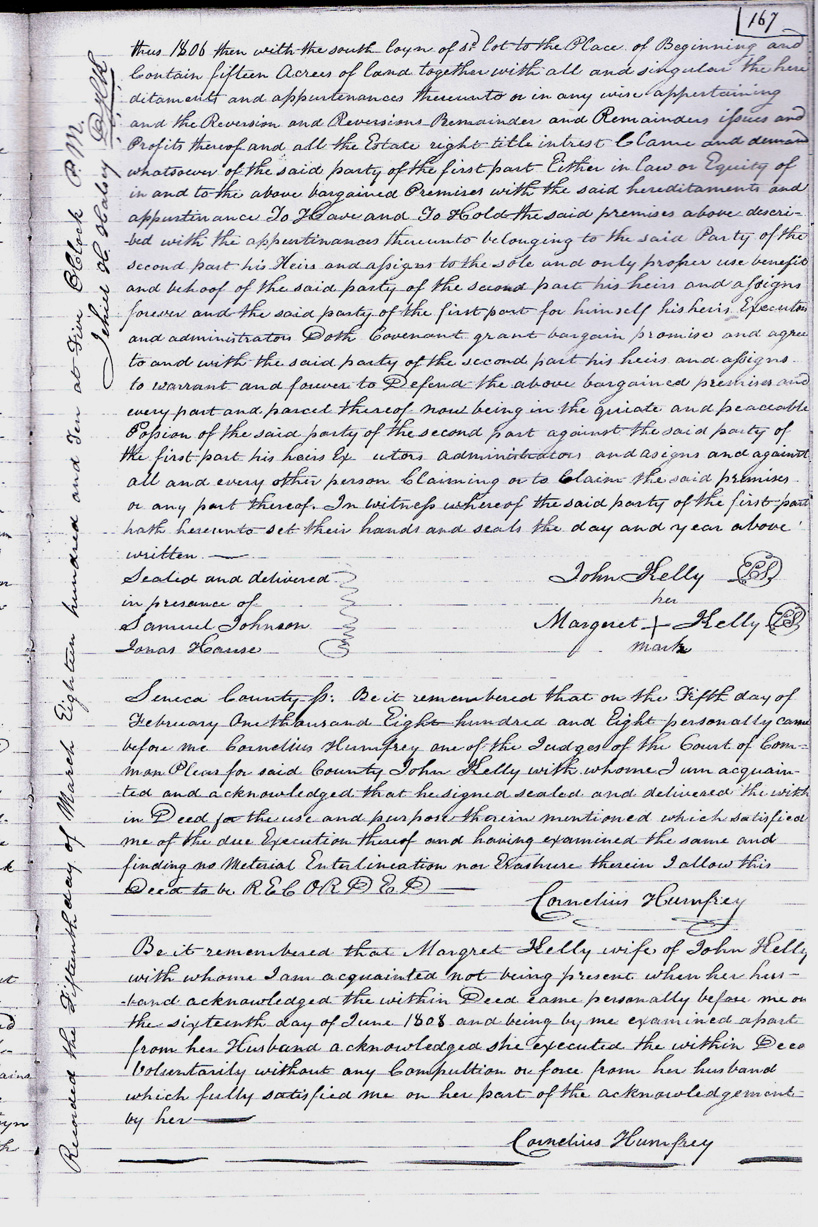 167
thus 1806 then with the south loyn of sd lot to the Place of Beginning and
Contain fifteen Acres of land together with all and singular the here
ditaments and appurtinances thereunto or in any wise appertaining
and the Reversion and Reversions Remainder and Remainders issues and
Profits thereof and all the Estate right title intrest Clame and demand
whatsoever of the said party of the first part Either in law or Equity of
in and to the above bargained Premises with the said hereditaments and
appurtenance To Have and To Hold the said premises above descri-
-bed with the appurtinances thereunto belonging to the said Party of the
second part his Heirs and assigns to the sole and only proper use benefit
and behoof of the said party of the second part his heirs and assigns
forever and the said party of the first part for himself his heirs Executors
and administrators Doth Covenant grant bargain promise and agree
to and with the said party of the second part his heirs and assigns
to warrant and forever to Defend the above bargained premises and
every part and parcel thereof now being in the quiate and peacable
Possion of the said party of the second part against the said party of
the first part his heirs Ex utors administrators and asigns and against
all and every other person Claiming or to Claim the said premises
or any part thereof. In witness whereof the said party of the first part
hath hereunto set their hands and seals the day and year above
written
Sealed and delivered
in presence of
Samuel Johnson
Jonas House
John Kelly LS
her
Margeret + Kelly LS
mark
Seneca County Ss: Be it remembered that on the Fifth day of
February One thousand Eight hundred and Eight personally came
before me Cornelius Humfrey one of the Judges of the Court of Com-
mon Pleas for said County John Kelly with whome I am acquain-
ted and acknowledged that he signed sealed and delivered the with
in Deed for the use and purpose therein mentioned which satisfied
me of the due Execution thereof and having examined the same and
finding no Meterial Enterlineation nor Erashure therein I allow this
Deed to be RECORDED
Cornelius Humfrey
Be it remembered that Margret Kelly wife of John Kelly
with whome I am acquainted not being present when her hus-
-band acknowledged the within Deed came personally before me on
the sixteenth day of June 1808 and being by me examined apart
from her Husband acknowledged she Executed the within Deed
Voluntarily without any Compultion or force from her husband
which fully satisfied me on her part of the acknowledgement
by her
Cornelius Humfrey
Recorded the Fifteenth day of March Eighteen hundred and Ten at Five OClock P.M.
Jehiel H. Halsey D. Clk